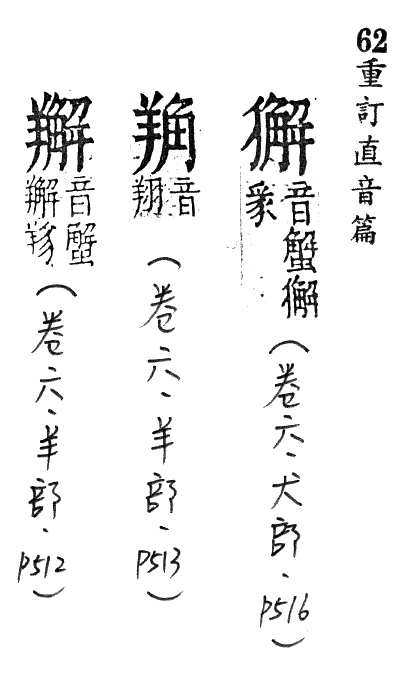 62重訂直音篇
獬
音蟹獬
(卷六、犬部、P516)
音翔
(卷六、羊部、P513)
音蟹
(卷六、羊部、P512)